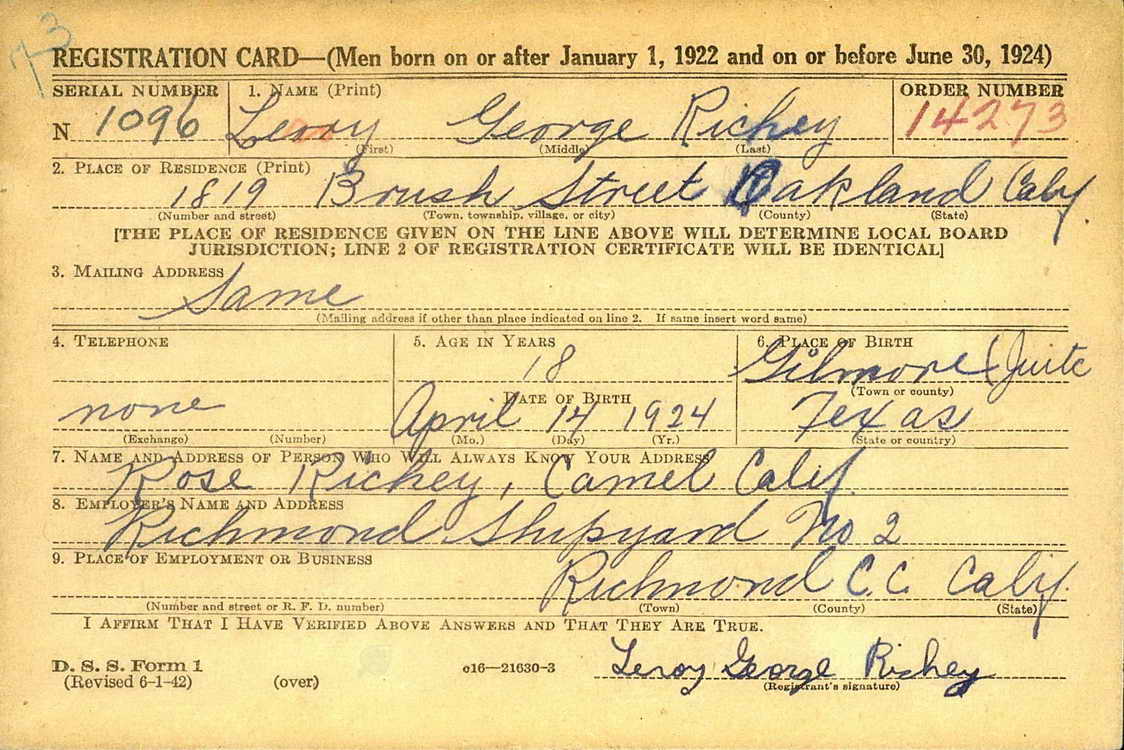 73
REGISTRATION CARD—(Men born on or after January 1, 1922 and on or before June 30, 1924)
SERIAL NUMBER 1. NAME (Print) ORDER NUMBER
N 1096 Leroy George Richey 14273
(First) (Middle) (Last)
2. PLACE OF RESIDENCE (Print)
1819 Brush Street Oakland Calif.
(Number and street) (Town, township, village, or city) (County) (State)
[THE PLACE OF RESIDENCE GIVEN ON THE LINE ABOVE WILL DETERMINE LOCAL BOARD
JURISDICTION; LINE 2 OF REGISTRATION CERTIFICATE WILL BE IDENTICAL]
3. MAILING ADDRESS
Same
(Mailing address if other than place indicated on line 2. If same insert word same)
4. TELEPHONE 5. AGE IN YEARS 6. PLACE OF BIRTH
18 Gilmore
DATE OF BIRTH (Town or county)
none April 14 1924 Texas
(Exchange) (Number) (Mo.) (Day) (Yr.) (State or country)
7. NAME AND ADDRESS OF PERSON WHO WILL ALWAYS KNOW YOUR ADDRESS
Rose Richey, Camel Calif.
8. EMPLOYER'S NAME AND ADDRESS
Richmond Shipyard No 2
9. PLACE OF EMPLOYMENT OR BUSINESS
Richmond C.C. Calif.
(Number and street or R. F. D. number) (Town) (County) (State)
I AFFIRM THAT I HAVE VERIFIED ABOVE ANSWERS AND THAT THEY ARE TRUE.
D. S. S. Form 1 c16—21630-3 Leroy George Richey
(Revised 6-1-42) (over) (Registrant's signature)